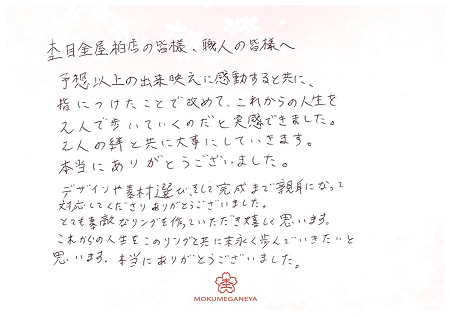 杢目金屋柏店の皆様、職人の皆様へ
予想以上の出来映えに感動すると共に、
指につけたことで改めて、これからの人生を
2人で歩いていくのだと実感できました。
2人の絆と共に大事にしていきます。
本当にありがとうございました。
デザインや素材選び、そして完成まで親身になって
対応してくださりありがとうございました。
とても素敵なリングを作っていただき嬉しく思います。
これからの人生をこのリングと共に末永く歩んでいきたいと
思います。本当にありがとうございました。
MOKUMEGANEYA